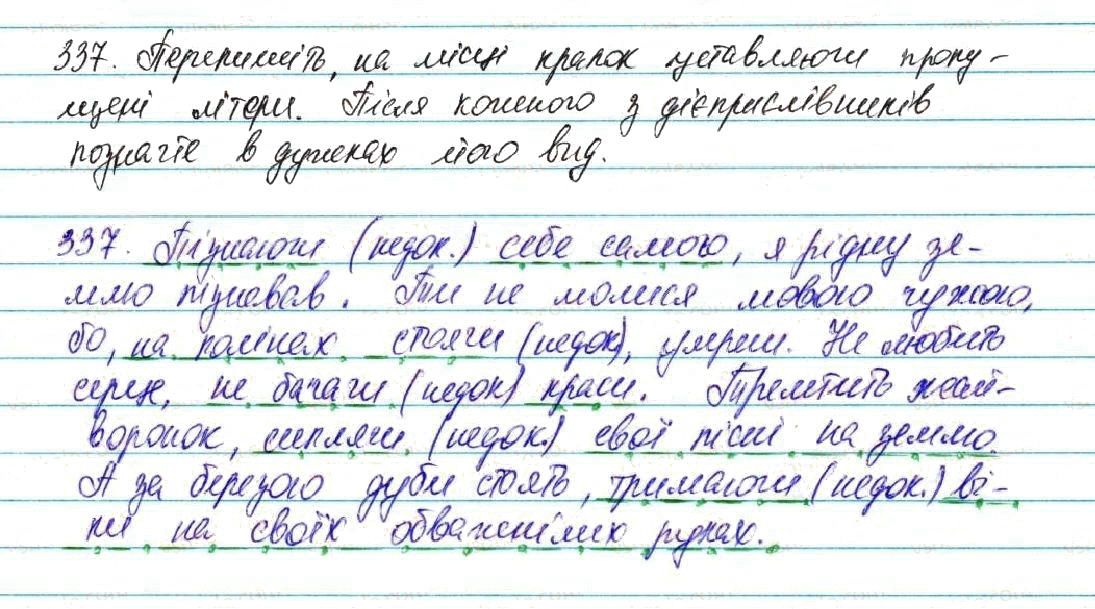 337. Перепишіть, на місці крапок уставляючи пропу-
щені літери. Після кожного з дієприслівників
позначте в дужках його вид.
337. Пізнаючи (недок.) себе самого, я рідну зе-
млю пізнавав. Ти не молися мовою чужою,
бо, на колінах стоячи (недок), умреш. Не любить
серце, не бачачи (недок) краси. Тремтить жай-
воронок, сиплячи (недок.) свої пісні на землю.
А за березою дуби стоять, тримаючи (недок.) ві-
ки на своїх обважнілих руках.